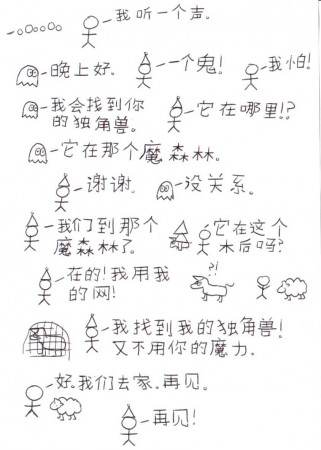 我听一个声。
晚上好。 一个鬼! 我怕!
我会找到你 它在哪里!?
的独角兽。
它在那个魔森林。
谢谢。 没关系。
我们到那个 它在这个
魔森林了。 木后吗?
在的!我用我 ?!
的网!
我找到我的独角兽!
又不用你的魔力。
好。我们去家。再见。
再见!